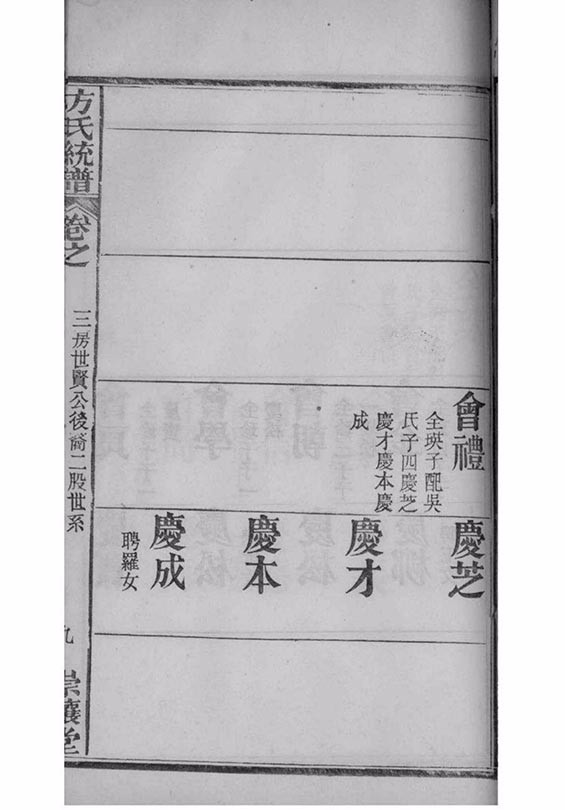 會禮
全瑛子配吳
氏子四慶芝
慶才慶本慶
成
慶芝
慶才
慶本
慶成
聘羅女
方氏統譜
卷之
三房世賢公後裔二股世系
九
崇讓堂